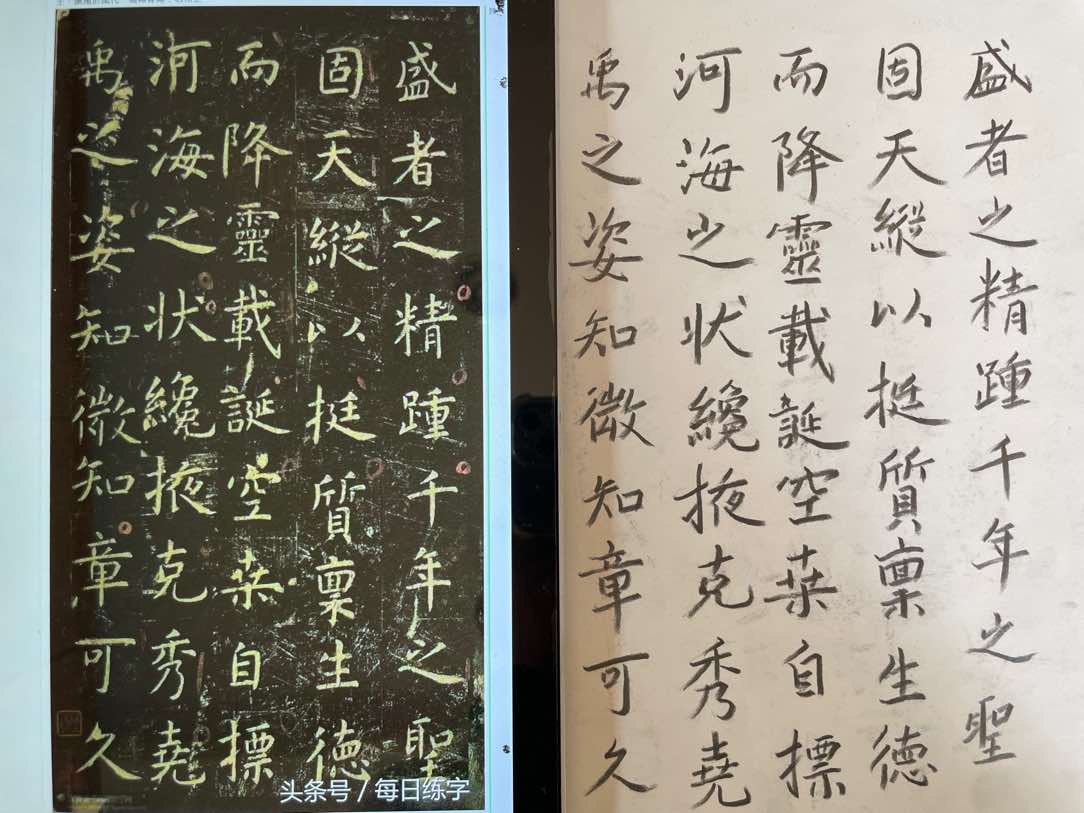 盛者之精踵千年之聖
固天縱以挺質稟生德
而降靈載誕空桒自標
河海之状纔掖克秀堯
禹之姿知微知章可久
头条号 / 每日练字
盛者之精踵千年之聖
固天縱以挺質稟生德
而降靈載誕空桒自標
河海之状纔掖克秀堯
禹之姿知微知章可久